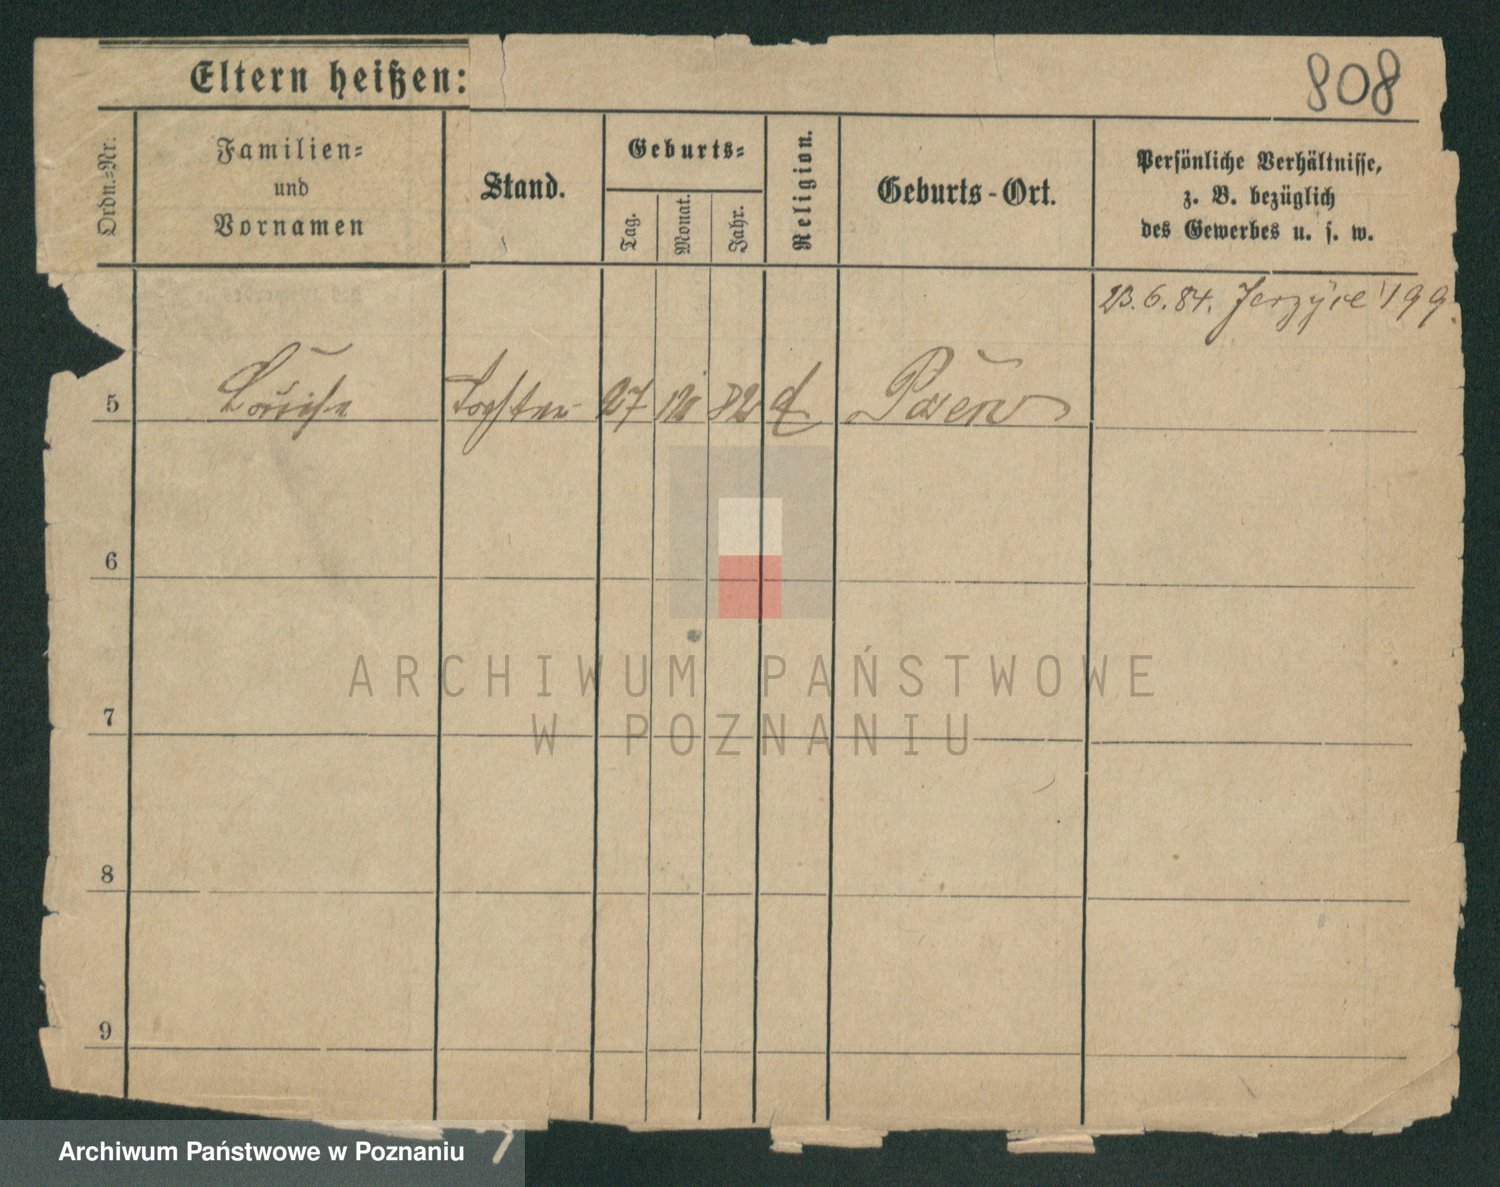 808
Eltern heißen:
Ordn.-Nr.
Familien-
und
Vornamen
Stand.
Geburts-
Tag.
Monat.
Jahr.
Religion.
Geburts-Ort.
Persönliche Verhältnisse,
z. B. bezüglich
des Gewerbes u. s. w.
23.6.84. Jerzyce 199.
5 Louise Tochter 27 12 82 Posen
6
7
8
9
ARCHIWUM PAŃSTWOWE
W POZNANIU
Archiwum Państwowe w Poznaniu